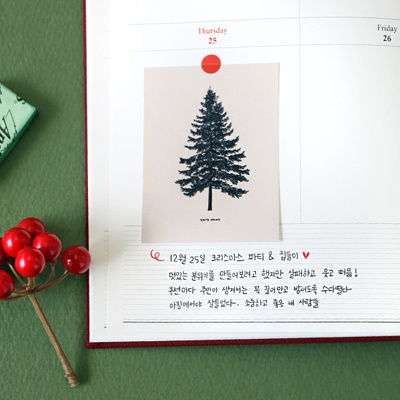 Thursday
25
Friday
26
12월 25일 크리스마스 파티 & 집들이
멋있는 분위기를 만들어보려고 했지만 실패하고 웃고 떠듬!
주인이 꼭 끌어안고 밤새도록 수다떨다
아침에서야 잠들었다. 소중하고 좋은 내 사람들